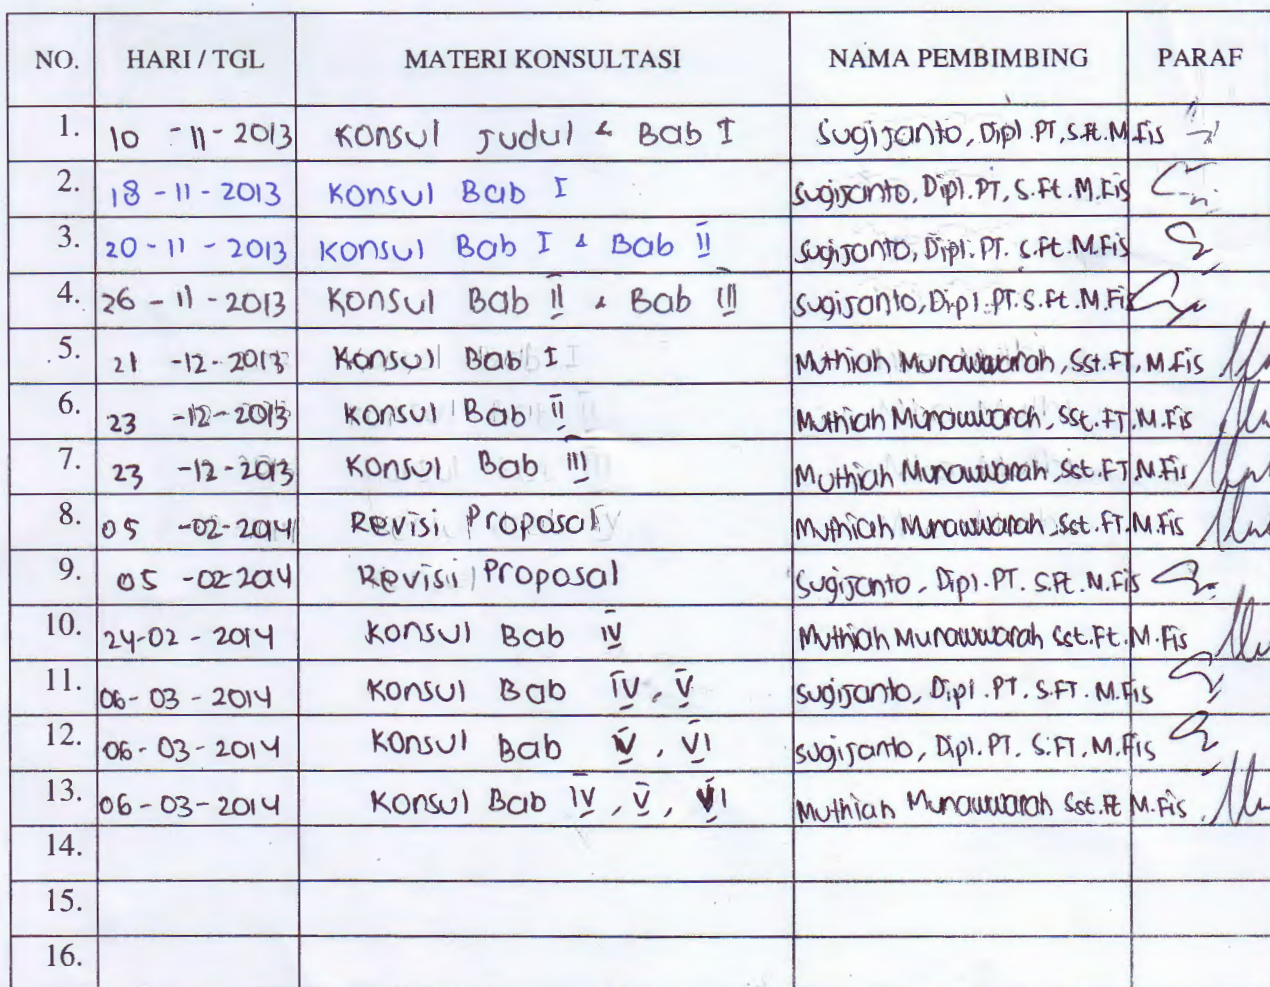 NO. HARI / TGL MATERI KONSULTASI NAMA PEMBIMBING PARAF
1. 10 - 11 - 2013 Konsul Judul & Bab I Sugijanto, Dipl.PT, S.Ft. M.Fis
2. 18 - 11 - 2013 Konsul Bab I Sugijanto, Dipl. PT, S.Ft. M.Fis
3. 20 - 11 - 2013 Konsul Bab I & Bab II Sugijanto, Dipl. PT. S.Ft. M.Fis
4. 26 - 11 - 2013 Konsul Bab II & Bab III Sugijanto, Dipl. PT. S.Ft. M.Fis
5. 21 - 12 - 2013 Konsul Bab I Muthiah Munawwarah, Sst.FT, M.Fis
6. 23 - 12 - 2013 Konsul Bab II Muthiah Munawwarah, Sst.FT. M.Fis
7. 23 - 12 - 2013 Konsul Bab III Muthiah Munawwarah, Sst.FT. M.Fis
8. 05 - 02 - 2014 Revisi Proposal Muthiah Munawwarah, Sst.FT. M.Fis
9. 05 - 02 2014 Revisi Proposal Sugijanto, Dipl. PT. S.Ft. M.Fis
10. 24-02 - 2014 Konsul Bab IV Muthiah Munawwarah Sst.Ft. M.Fis
11. 06 - 03 - 2014 Konsul Bab IV, V Sugijanto, Dipl. PT. S.FT. M.Fis
12. 06 - 03 - 2014 Konsul Bab V, VI Sugijanto, Dipl. PT. S.FT. M.Fis
13. 06 - 03 - 2014 Konsul Bab IV, V, VI Muthiah Munawwarah Sst.Ft M.Fis
14.
15.
16.